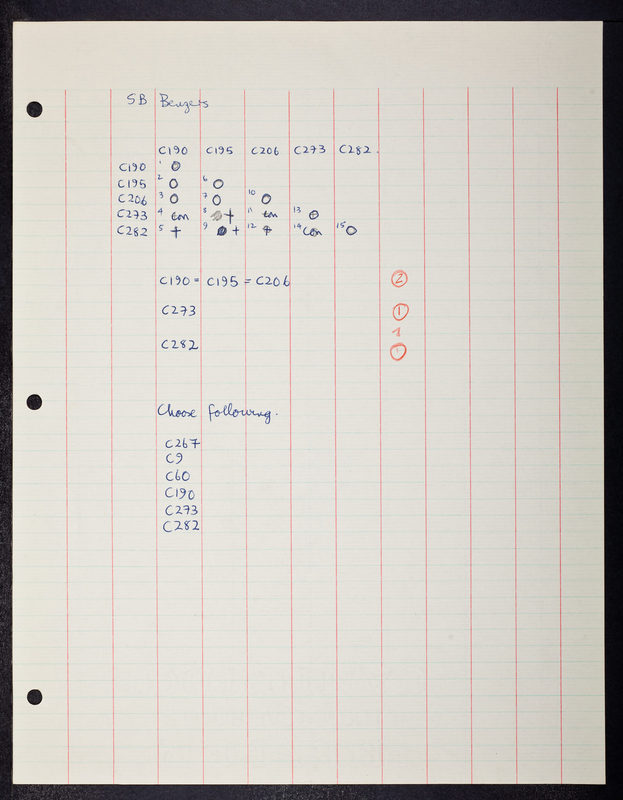 SB Benzers
C190 C195 C206 C273 C282.
C190 1 O
C195 2 O 6 O
C206 3 O 7 O 10 O
C273 4 con 8 + 11 con 13 O
C282 5 + 9 + 12 + 14 con 15 O
C190 = C195 = C206 2
C273 1
1
C282 1
Choose following.
C267
C9
C60
C190
C273
C282